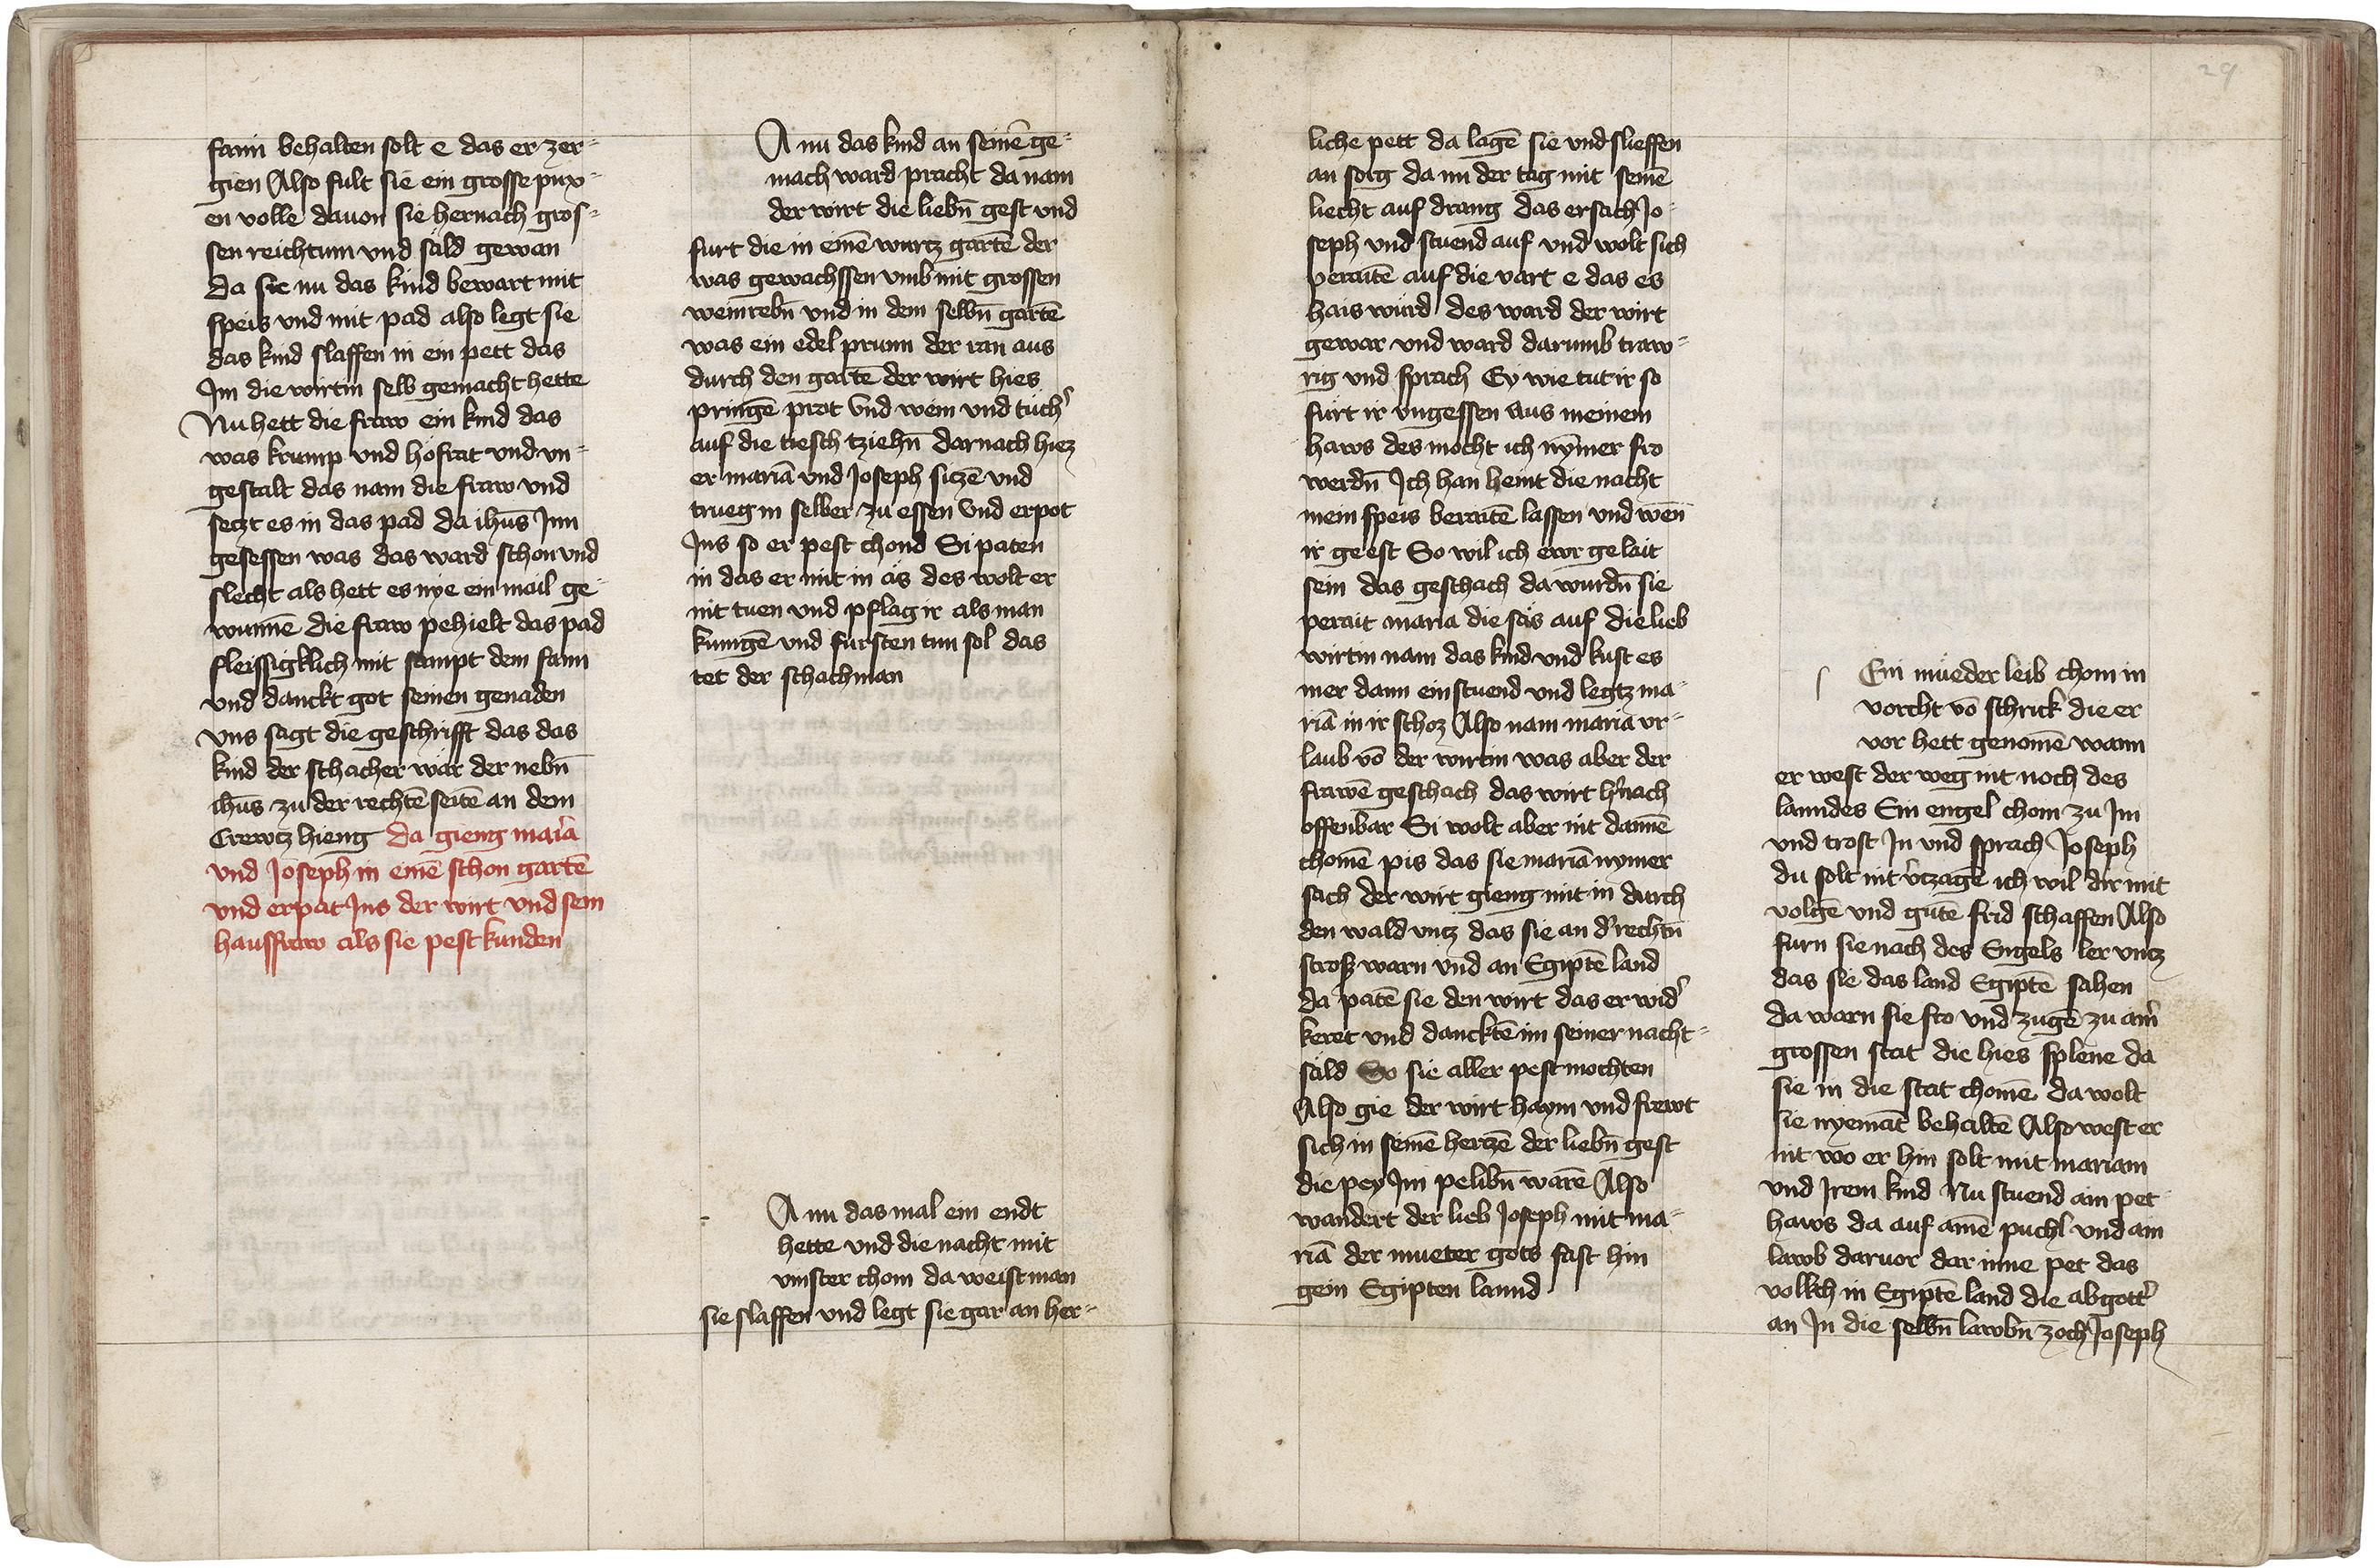 fami behalten solt e das er zer⸗
gien Also fult sie ein grosse pux⸗
en volle dauon sie hernach gros⸗
sen reichtum vnd säld gewan
da sie nu das kind bewart mit
speis vnd mit pad also legt sie
das kind slaffen in ein pett das
Im die wirtin selb gemacht hette
Nu hett die fraw ein kind das
was krump vnd hofrat vnd vn⸗
gestalt das nam die fraw vnd
seczt es in das pad da ihūs Inn
gesessen was das ward schon vnd
slecht als hett es nye ein mail ge⸗
wunnē die fraw pehielt das pad
fleissigklich mit sampt dem fami
vnd danckt got seinen genaden
vns sagt die geschrifft das das
kind der schacher wär der nebn̄
ihūs zu der rechtē seitē an dem
Crewtz hieng da gieng maria
vnd Joseph in einē schon gartē
vnd erpat Ins der wirt vnd sein
hausfraw als sie pest kunden
A nu das kind an seinē ge⸗
mach ward pracht da nam
der wirt die liebn̄ gest vnd
furt die in einē wurtz gartē der
was gewachssen vmb mit grossen
weinrebn̄ vnd in dem selbn̄ gartē
was ein edel prunn der ran aus
durch den gartē der wirt hies
pringē prot vnd wein vnd tüch͛
auf die tiesch tziehn̄ darnach hiez
er mariā vnd Joseph siczē vnd
trueg in selber zu essen vnd erpot
Ins so er pest chond Si paten
in das er mit in äs des wolt er
nit tuen vnd pflag ir als man
kunigē vnd fursten tun sol das
tet der schachman
A nu das mal ein endt
hette vnd die nacht mit
vinster chom da weist man
sie slaffen vnd legt sie gar an her⸗
liche pett da lagē sie vnd slieffen
an sorg da nu der tag mit seinē
liecht auf drang das ersach Jo⸗
seph vnd stuend auf vnd wolt sich
peraitē auf die vart e das es
hais würd des ward der wirt
gewar vnd ward darumb traw⸗
rig vnd sprach Ey wie tut ir so
fürt ir vngessen aus meinem
haws des mocht ich nȳmer fro
werdn̄ Ich han heint die nacht
mein speis beraitē lassen vnd wen̄
ir geest So wil ich ewr gelait
sein das geschach da wurdn̄ sie
perait maria die säs auf die lieb
wirtin nam das kind vnd kust es
mer dann ein stuend vnd legtz ma⸗
riā in ir schoz Also nam maria vr⸗
laub vō der wirtin was aber der
frawē geschach das wirt h͛nach
offenbar Si wolt aber nit dannē
chomē pis das sie mariā nymer
sach der wirt gieng mit in durch
den wald vntz das sie an d͛ rechtn̄
stross warn vnd an Egiptē land
da patē sie den wirt das er wid͛
keret vnd dancktē im seiner nacht⸗
säld So sie aller pest mochten
Also gie der wirt haym vnd frewt
sich in seinē herczē der liebn̄ gest
die pey Im pelibn̄ warē Also
wandert der lieb Joseph mit ma⸗
riā der mueter gots fast hin
gein Egipten lannd
Ein müeder leib chom in
vorcht vō schrick die er
vor hett genomē wann
er west der weg nit noch des
lanndes Ein engel chom zu Im
vnd trost In vnd sprach Joseph
du solt nit v͛tzagē ich wil dir mit
volgē vnd gutē frid schaffen Also
furn sie nach des Engels ler vntz
das sie das land Egiptē sahen
da warn sie fro vnd zugē zu ain͛
grossen stat die hies splene da
sie in die stat chomē da wolt
sie nyemāt behaltē Also west er
nit wo er hin solt mit mariam
vnd Irem kind Nu stuend ain pet
haws da auf ainē puchl vnd ain
lawb daruor dar inne pet das
volkch in Egiptē land die abgott͛
an In die selbn̄ lawbn̄ zoch Joseph